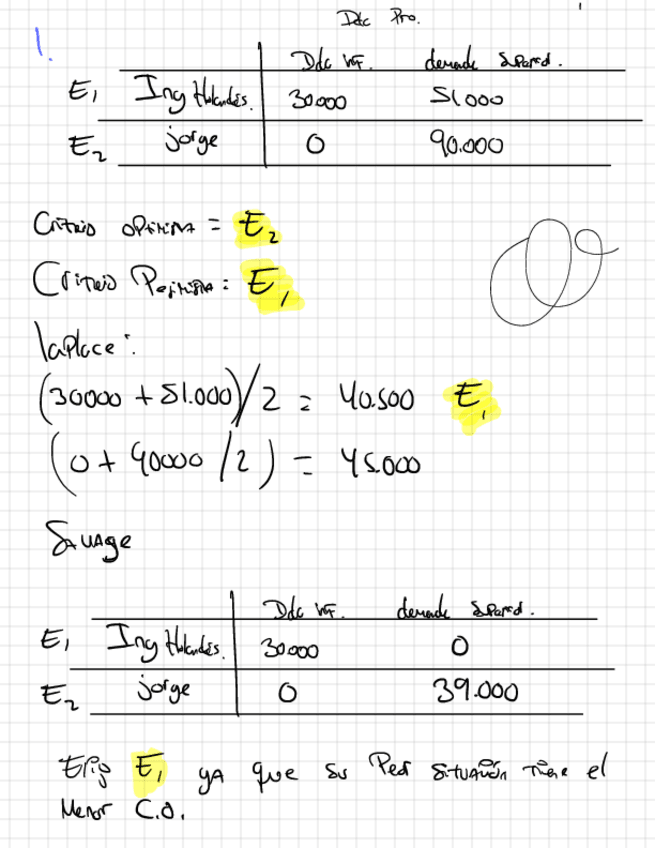 Ddc Pro.
1.
Ddc inf. demade Spared.
E1 Ing Holandés. 30000 51.000
E2 jorge 0 90.000
Criterio optimista = E2
Criterio Pesimista: E1
laplace:
(30000 + 51.000)/2 = 40.500 E1
(0 + 90000 /2) = 45.000
Savage
Ddc inf. demade Spared.
E1 Ing Holandés. 30.000 0
E2 jorge 0 39.000
Elijo E1 ya que su Peor situación tiene el
Menor C.O.